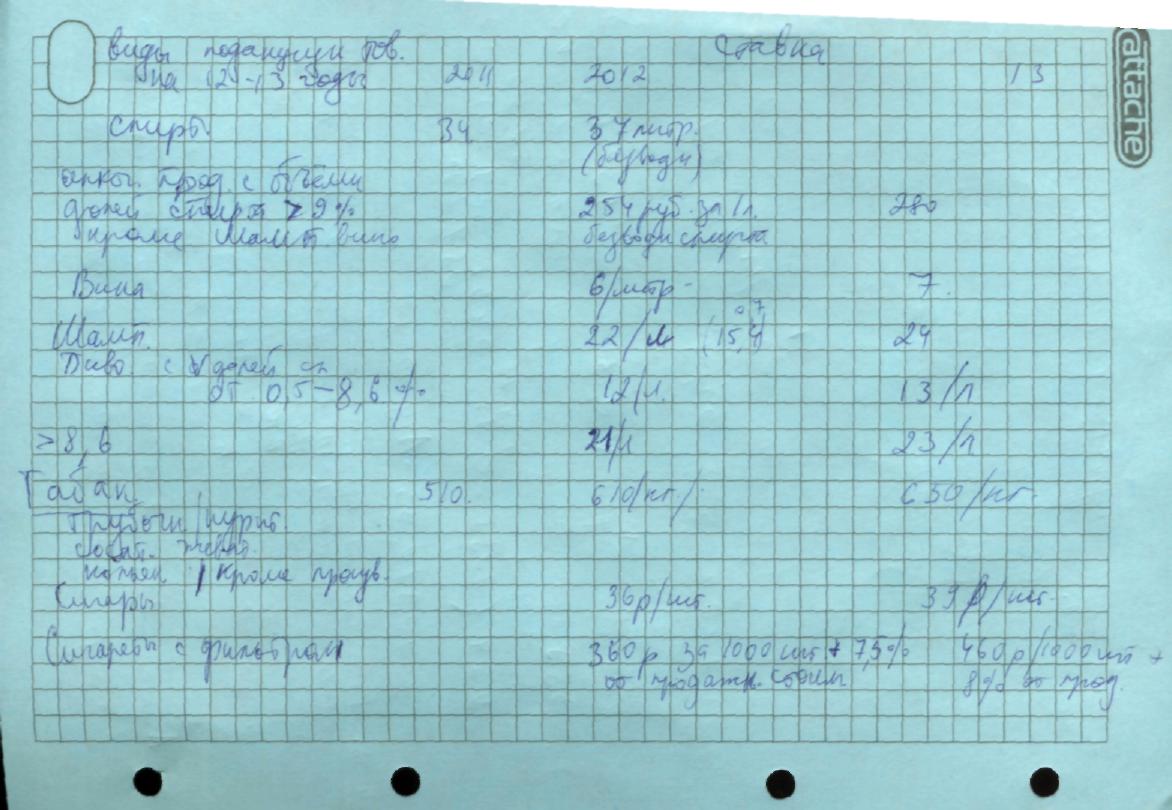 виды подакцизн тов. ставка
на 12-13 годы 2011 2012 13
спирт. 34 37 литр.
(безводн)
алког. прод. с объемн
долей спирта > 9% 254 руб. за 1 л. 280
кроме шамп вино безводн спирта
Вина 6/литр- 7.
0,7
Шамп. 22/л (15,4) 24
Пиво. с V долей сп
от 0,5-8,6% 12/л. 13/л
>8,6 21/л 23/л
Табак. 510. 610/кг/. 650/кг.
трубочн./курит.
сосат. жеват.
кальян / кроме
Сигары 36р/шт. 39 р/шт.
Сигареты с фильтром 360р за 1000 шт + 7,5% 460р/1000шт +
от продажн. стоим 8% от прод.
attache